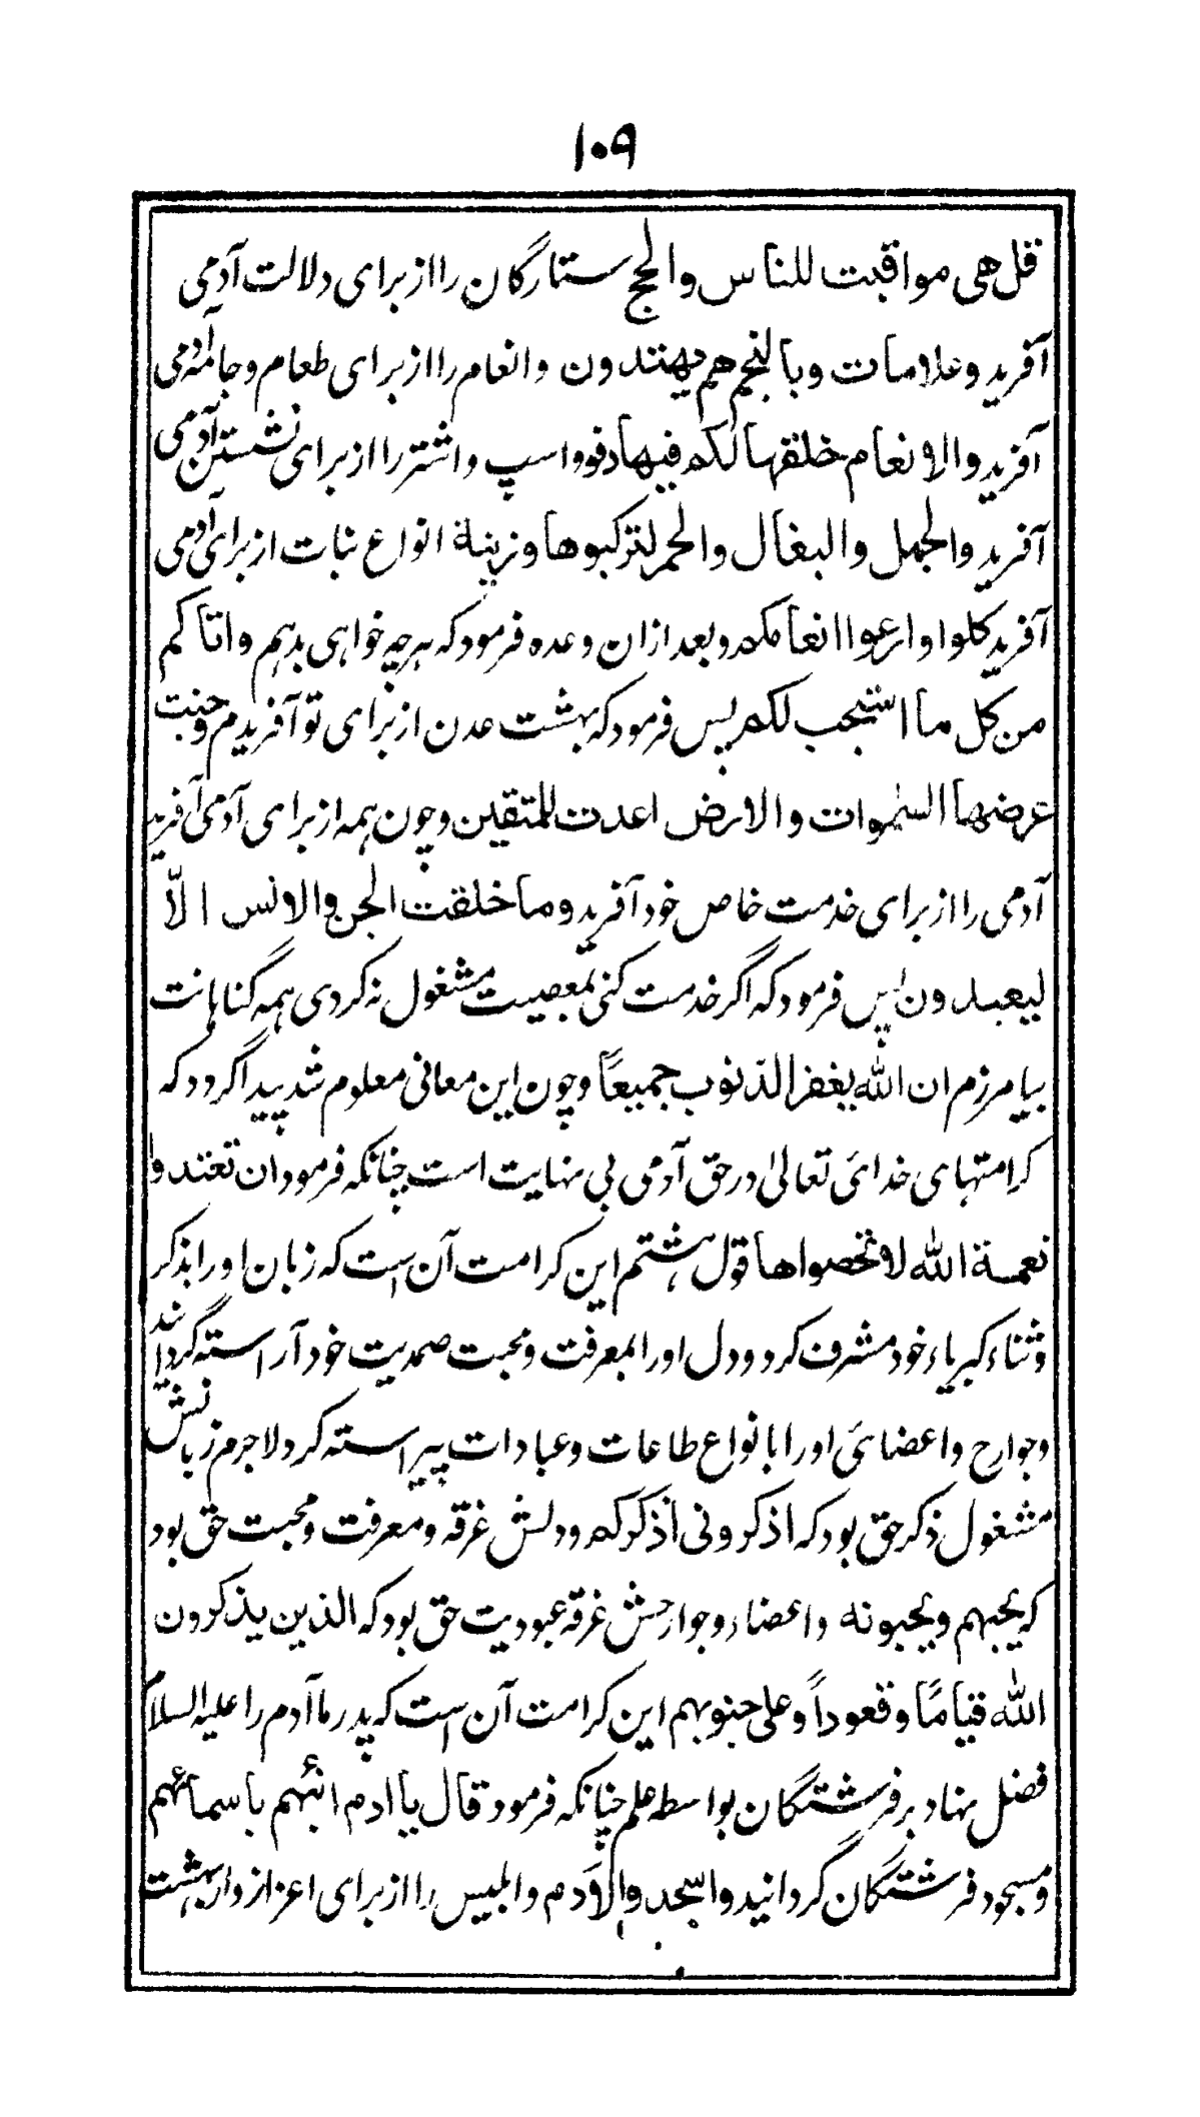 ۱۰۹
قل هی مواقیت للناس والحج ستارگان را از برای دلالت آدمی
آفرید وعلامات وبالنجم هم یهتدون وانعام را از برای طعام وجامه آدمی
آفرید والانعام خلقها لکم فیها دفو واسپ واشتر را از برای نشستن آدمی
آفرید والجمل والبغال والحمر لترکبوها وزینة انواع نبات از برای آدمی
آفرید کلوا وارعوا انعامکم وبعد ازان وعده فرمود که هرچه خواهی بدهم واتاکم
من کل ما استجب لکم پس فرمود که بهشت عدن از برای تو آفریدم وجنت
عرضها السموات والارض اعدت للمتقین وچون همه از برای آدمی آفرید
آدمی را از برای خدمت خاص خود آفرید وما خلقت الجن والانس الّا
لیعبدون پس فرمود که اگر خدمت کنی بمعصیت مشغول نه کردی همه گناهانت
بیامرزم ان الله یغفر الذنوب جمیعاً وچون این معانی معلوم شد پیدا گردد که
کرامتهای خدائی تعالیٰ در حق آدمی بی نهایت است چنانکه فرمود ان تعتدوا
نعمة الله لا تحصواها قول هشتم این کرامت آن است که زبان او را بذکر
وثناء کبریاء خود مشرف کرد ودل او را بمعرفت ومحبت صمدیت خود آراسته گرداند
وجوارح واعضائی او را بانواع طاعات وعبادات پیراسته کرد لاجرم زبانش
مشغول ذکر حق بود که اذکرونی اذکرکم ودلش غرقه ومعرفت ومحبت حق بود
که یحبهم ویحبونه واعضاء وجوارحش غرقه عبودیت حق بود که الذین یذکرون
الله قیاماً وقعوداً وعلی جنوبهم این کرامت آن است که پدر ما آدم را علیه السلام
فضل نهاد بر فرشتگان بواسطه علم چنانکه فرمود قال یا ادم انبئهم باسمائهم
ومسجود فرشتگان گردانید واسجدوا لاٰدم وابلیس را از برای اعزاز واز بهشت